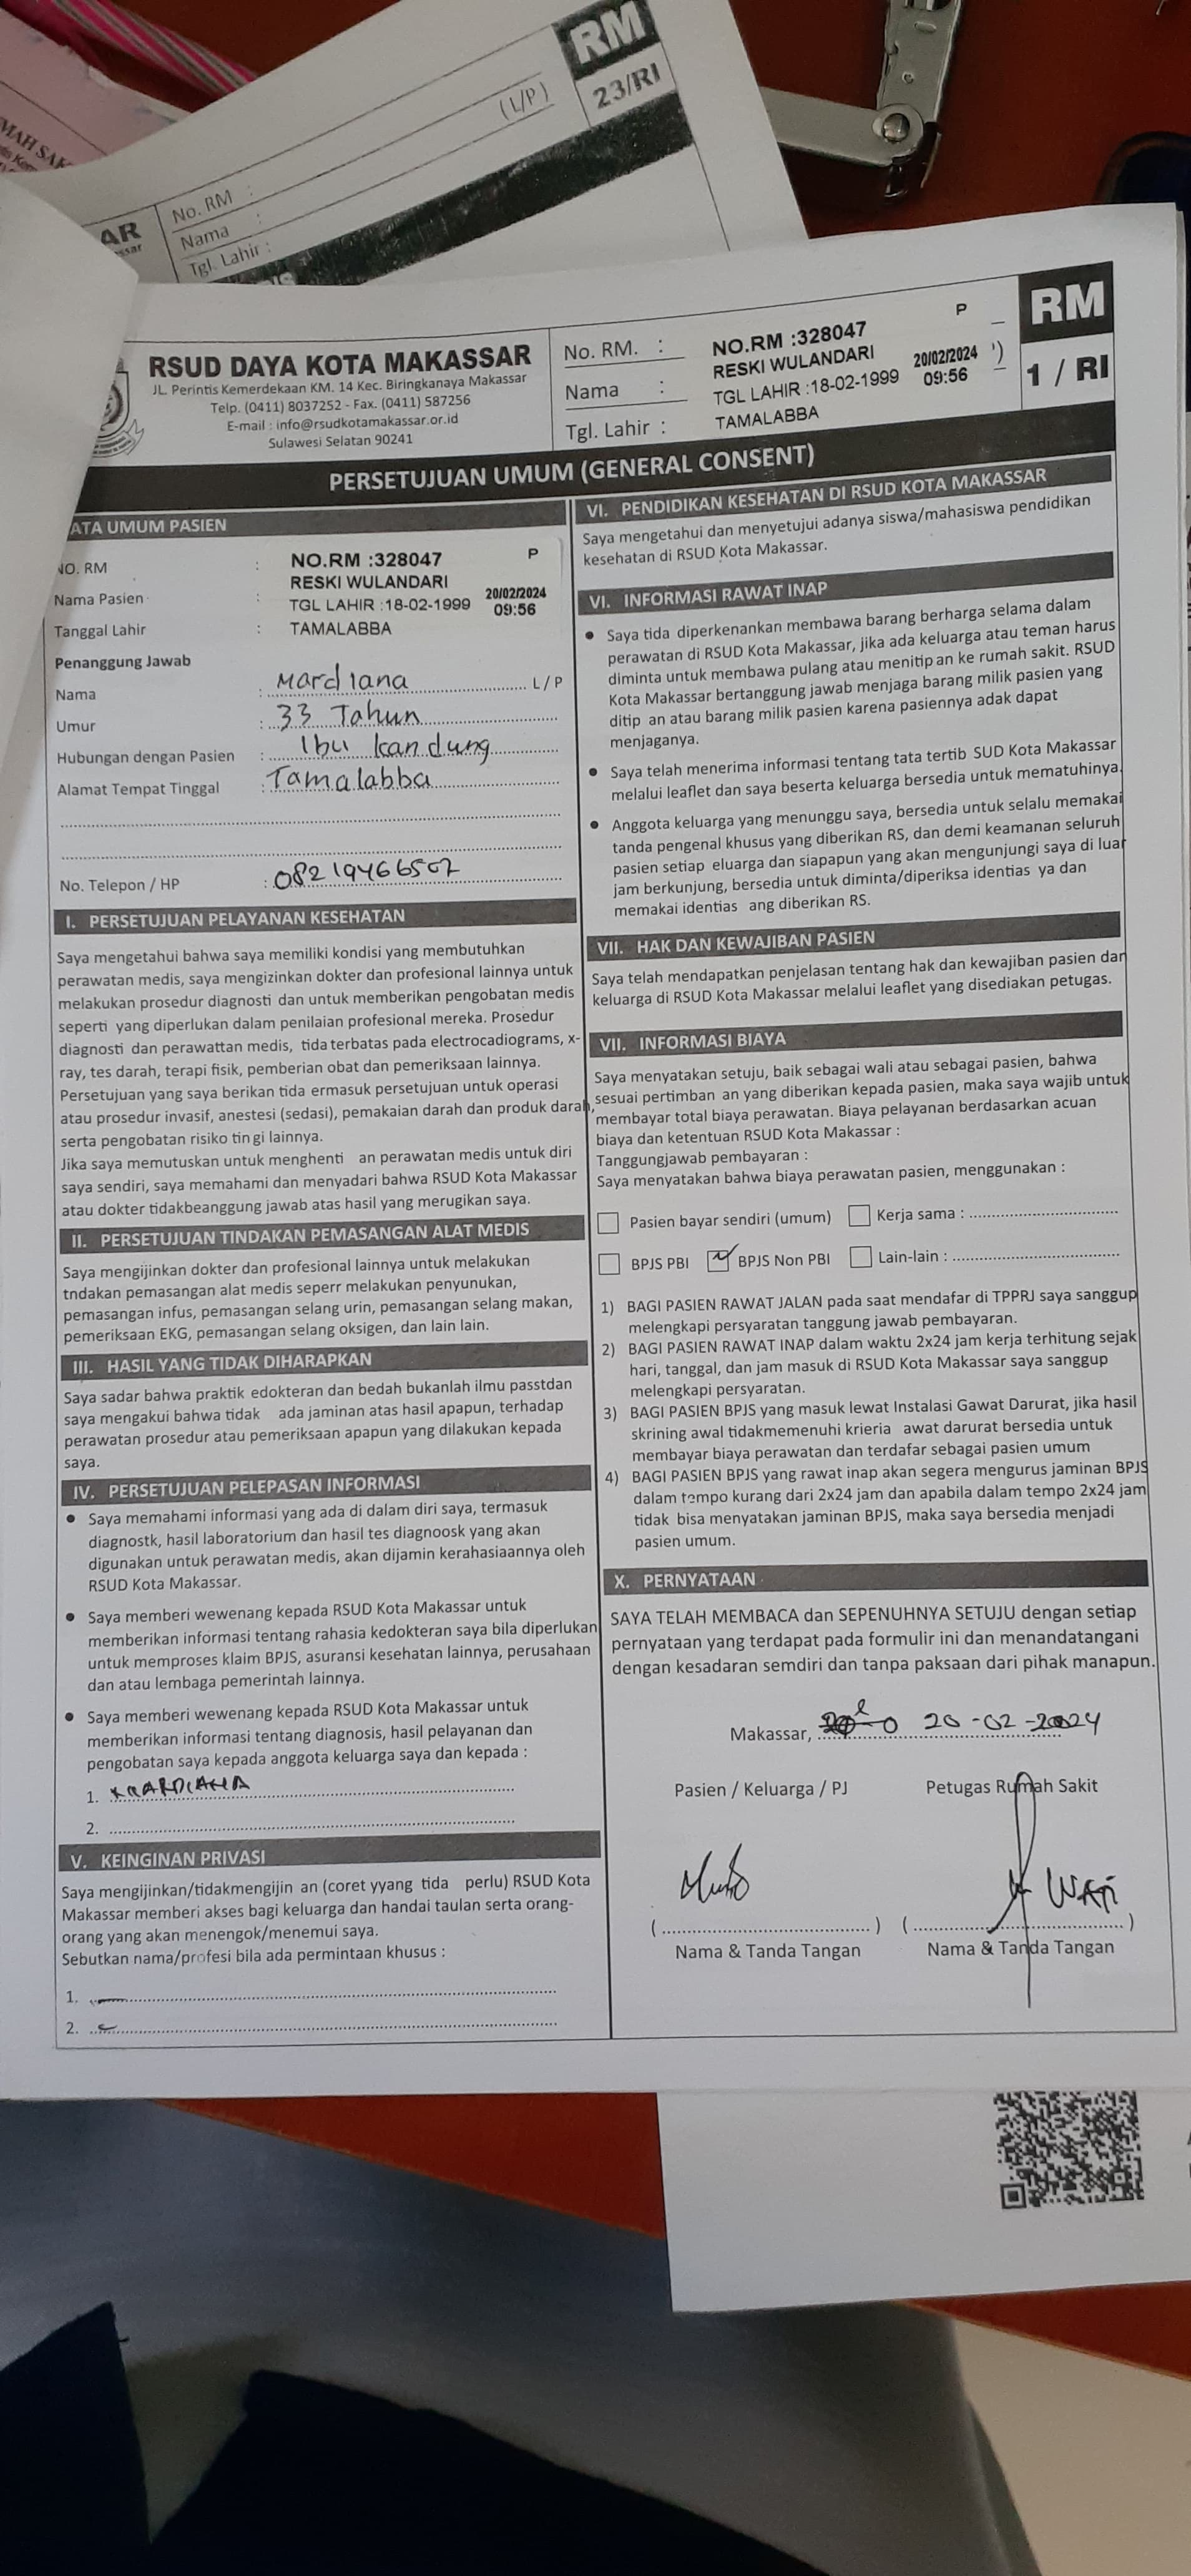 RM
23/RI
(L/P)
No. RM :
Nama :
Tgl. Lahir :
AR
RSUD DAYA KOTA MAKASSAR
JL. Perintis Kemerdekaan KM. 14 Kec. Biringkanaya Makassar
Telp. (0411) 8037252 - Fax. (0411) 587256
E-mail : info@rsudkotamakassar.or.id
Sulawesi Selatan 90241
No. RM. :
Nama :
Tgl. Lahir :
NO.RM :328047 P
RESKI WULANDARI 20/02/2024
TGL LAHIR :18-02-1999 09:56
TAMALABBA
RM
1 / RI
PERSETUJUAN UMUM (GENERAL CONSENT)
ATA UMUM PASIEN
NO. RM :
Nama Pasien :
Tanggal Lahir :
NO.RM :328047 P
RESKI WULANDARI 20/02/2024
TGL LAHIR :18-02-1999 09:56
TAMALABBA
Penanggung Jawab
Nama : Mardiana L / P
Umur : 33 Tahun
Hubungan dengan Pasien : Ibu kandung
Alamat Tempat Tinggal : Tamalabba
No. Telepon / HP : 08219466502
I. PERSETUJUAN PELAYANAN KESEHATAN
Saya mengetahui bahwa saya memiliki kondisi yang membutuhkan
perawatan medis, saya mengizinkan dokter dan profesional lainnya untuk
melakukan prosedur diagnosti dan untuk memberikan pengobatan medis
seperti yang diperlukan dalam penilaian profesional mereka. Prosedur
diagnosti dan perawattan medis, tida terbatas pada electrocadiograms, x-
ray, tes darah, terapi fisik, pemberian obat dan pemeriksaan lainnya.
Persetujuan yang saya berikan tida ermasuk persetujuan untuk operasi
atau prosedur invasif, anestesi (sedasi), pemakaian darah dan produk darah,
serta pengobatan risiko tin gi lainnya.
Jika saya memutuskan untuk menghenti an perawatan medis untuk diri
saya sendiri, saya memahami dan menyadari bahwa RSUD Kota Makassar
atau dokter tidakbeanggung jawab atas hasil yang merugikan saya.
II. PERSETUJUAN TINDAKAN PEMASANGAN ALAT MEDIS
Saya mengijinkan dokter dan profesional lainnya untuk melakukan
tndakan pemasangan alat medis seperr melakukan penyunukan,
pemasangan infus, pemasangan selang urin, pemasangan selang makan,
pemeriksaan EKG, pemasangan selang oksigen, dan lain lain.
III. HASIL YANG TIDAK DIHARAPKAN
Saya sadar bahwa praktik edokteran dan bedah bukanlah ilmu passtdan
saya mengakui bahwa tidak ada jaminan atas hasil apapun, terhadap
perawatan prosedur atau pemeriksaan apapun yang dilakukan kepada
saya.
IV. PERSETUJUAN PELEPASAN INFORMASI
• Saya memahami informasi yang ada di dalam diri saya, termasuk
diagnostk, hasil laboratorium dan hasil tes diagnoosk yang akan
digunakan untuk perawatan medis, akan dijamin kerahasiaannya oleh
RSUD Kota Makassar.
• Saya memberi wewenang kepada RSUD Kota Makassar untuk
memberikan informasi tentang rahasia kedokteran saya bila diperlukan
untuk memproses klaim BPJS, asuransi kesehatan lainnya, perusahaan
dan atau lembaga pemerintah lainnya.
• Saya memberi wewenang kepada RSUD Kota Makassar untuk
memberikan informasi tentang diagnosis, hasil pelayanan dan
pengobatan saya kepada anggota keluarga saya dan kepada :
1. MARDIANA
2.
V. KEINGINAN PRIVASI
Saya mengijinkan/tidakmengijin an (coret yyang tida perlu) RSUD Kota
Makassar memberi akses bagi keluarga dan handai taulan serta orang-
orang yang akan menengok/menemui saya.
Sebutkan nama/profesi bila ada permintaan khusus :
1.
2.
VI. PENDIDIKAN KESEHATAN DI RSUD KOTA MAKASSAR
Saya mengetahui dan menyetujui adanya siswa/mahasiswa pendidikan
kesehatan di RSUD Kota Makassar.
VI. INFORMASI RAWAT INAP
• Saya tida diperkenankan membawa barang berharga selama dalam
perawatan di RSUD Kota Makassar, jika ada keluarga atau teman harus
diminta untuk membawa pulang atau menitip an ke rumah sakit. RSUD
Kota Makassar bertanggung jawab menjaga barang milik pasien yang
ditip an atau barang milik pasien karena pasiennya adak dapat
menjaganya.
• Saya telah menerima informasi tentang tata tertib SUD Kota Makassar
melalui leaflet dan saya beserta keluarga bersedia untuk mematuhinya.
• Anggota keluarga yang menunggu saya, bersedia untuk selalu memakai
tanda pengenal khusus yang diberikan RS, dan demi keamanan seluruh
pasien setiap eluarga dan siapapun yang akan mengunjungi saya di luar
jam berkunjung, bersedia untuk diminta/diperiksa identias ya dan
memakai identias ang diberikan RS.
VII. HAK DAN KEWAJIBAN PASIEN
Saya telah mendapatkan penjelasan tentang hak dan kewajiban pasien dan
keluarga di RSUD Kota Makassar melalui leaflet yang disediakan petugas.
VII. INFORMASI BIAYA
Saya menyatakan setuju, baik sebagai wali atau sebagai pasien, bahwa
sesuai pertimban an yang diberikan kepada pasien, maka saya wajib untuk
membayar total biaya perawatan. Biaya pelayanan berdasarkan acuan
biaya dan ketentuan RSUD Kota Makassar :
Tanggungjawab pembayaran :
Saya menyatakan bahwa biaya perawatan pasien, menggunakan :
Pasien bayar sendiri (umum) Kerja sama :
BPJS PBI BPJS Non PBI Lain-lain :
1) BAGI PASIEN RAWAT JALAN pada saat mendafar di TPPRJ saya sanggup
melengkapi persyaratan tanggung jawab pembayaran.
2) BAGI PASIEN RAWAT INAP dalam waktu 2x24 jam kerja terhitung sejak
hari, tanggal, dan jam masuk di RSUD Kota Makassar saya sanggup
melengkapi persyaratan.
3) BAGI PASIEN BPJS yang masuk lewat Instalasi Gawat Darurat, jika hasil
skrining awal tidakmemenuhi krieria awat darurat bersedia untuk
membayar biaya perawatan dan terdafar sebagai pasien umum
4) BAGI PASIEN BPJS yang rawat inap akan segera mengurus jaminan BPJS
dalam tempo kurang dari 2x24 jam dan apabila dalam tempo 2x24 jam
tidak bisa menyatakan jaminan BPJS, maka saya bersedia menjadi
pasien umum.
X. PERNYATAAN
SAYA TELAH MEMBACA dan SEPENUHNYA SETUJU dengan setiap
pernyataan yang terdapat pada formulir ini dan menandatangani
dengan kesadaran semdiri dan tanpa paksaan dari pihak manapun.
Makassar, 20-02-2024
Pasien / Keluarga / PJ Petugas Rumah Sakit
WATI
(....................) (....................)
Nama & Tanda Tangan Nama & Tanda Tangan